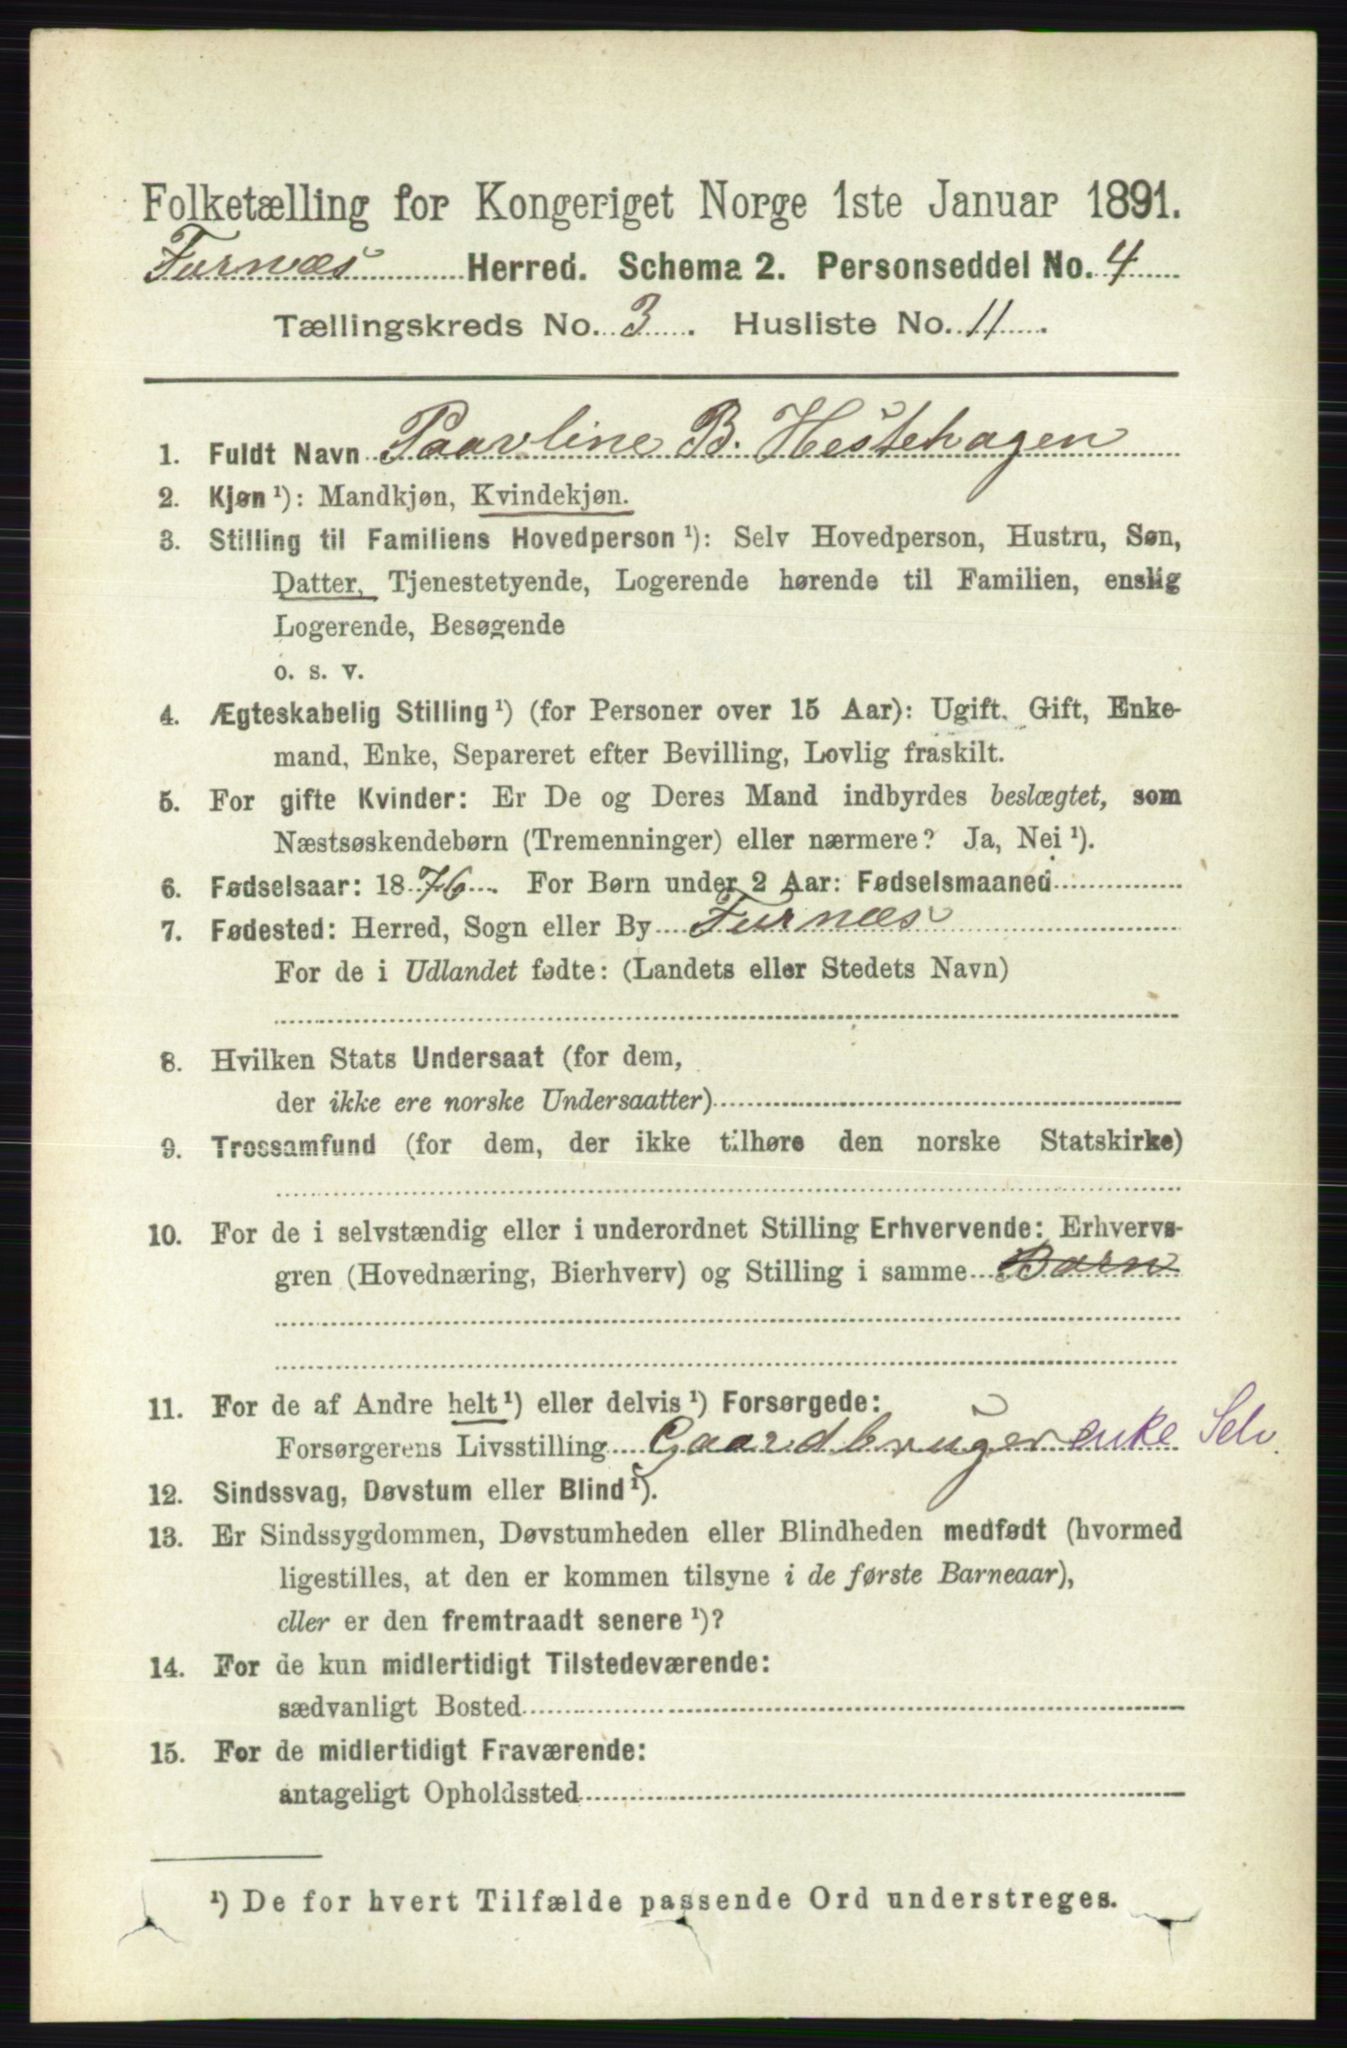 Folketælling for Kongeriget Norge 1ste Januar 1891.
Furnæs Herred. Schema 2. Personseddel No. 4
Tællingskreds No. 3. Husliste No. 11.
1. Fuldt Navn Paavline B. Hestehagen
2. Kjøn ¹): Mandkjøn, Kvindekjøn.
3. Stilling til Familiens Hovedperson ¹): Selv Hovedperson, Hustru, Søn,
Datter, Tjenestetyende, Logerende hørende til Familien, enslig
Logerende, Besøgende
o. s. v.
4. Ægteskabelig Stilling ¹) (for Personer over 15 Aar): Ugift. Gift, Enke-
mand, Enke, Separeret efter Bevilling, Lovlig fraskilt.
5. For gifte Kvinder: Er De og Deres Mand indbyrdes beslægtet, som
Næstsøskendebørn (Tremenninger) eller nærmere? Ja, Nei ¹).
6. Fødselsaar: 1876. For Børn under 2 Aar: Fødselsmaaned
7. Fødested: Herred, Sogn eller By Furnæs
For de i Udlandet fødte: (Landets eller Stedets Navn)
8. Hvilken Stats Undersaat (for dem,
der ikke ere norske Undersaatter)
9. Trossamfund (for dem, der ikke tilhøre den norske Statskirke)
10. For de i selvstændig eller i underordnet Stilling Erhvervende: Erhvervs-
gren (Hovednæring, Bierhverv) og Stilling i samme Barn
11. For de af Andre helt ¹) eller delvis ¹) Forsørgede:
Forsørgerens Livsstilling Gaardbruger enke Selv.
12. Sindssvag, Døvstum eller Blind ¹).
13. Er Sindssygdommen, Døvstumheden eller Blindheden medfødt (hvormed
ligestilles, at den er kommen tilsyne i de første Barneaar),
eller er den fremtraadt senere ¹)?
14. For de kun midlertidigt Tilstedeværende:
sædvanligt Bosted
15. For de midlertidigt Fraværende:
antageligt Opholdssted
¹) De for hvert Tilfælde passende Ord understreges.